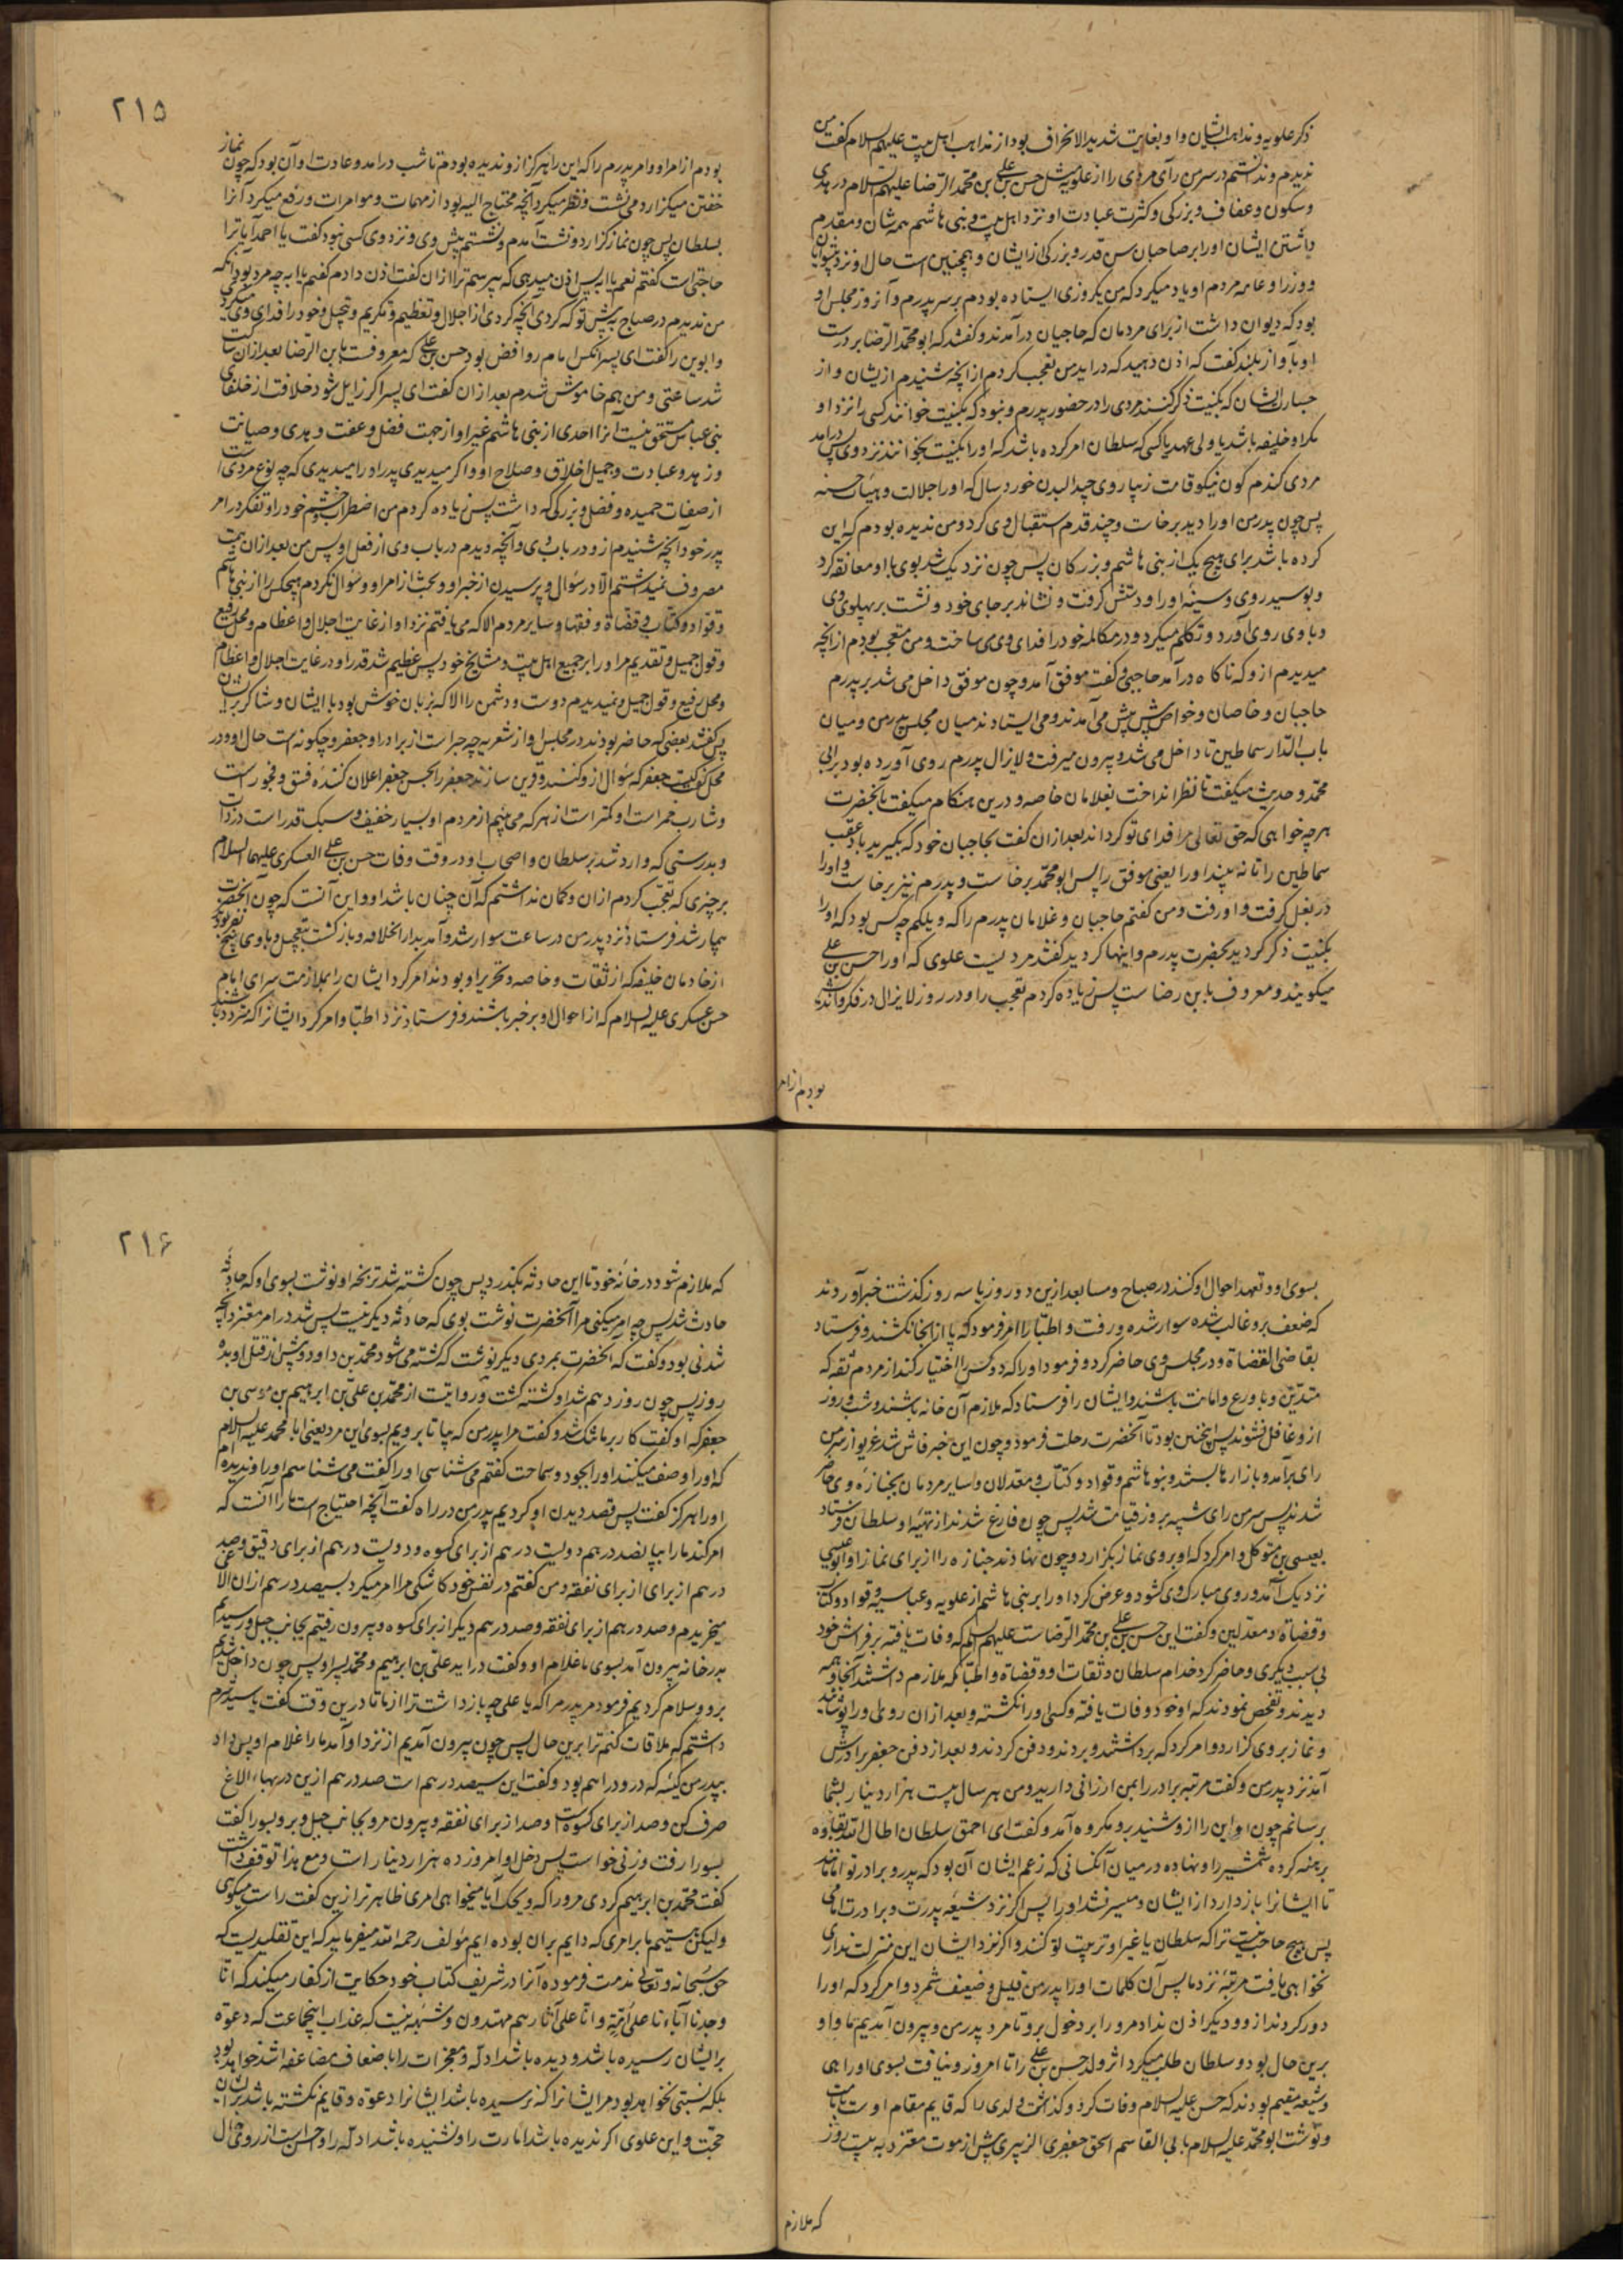 ذکر علویه و مذاهب ایشان و او بغایت شدید الانحراف بود از مذاهب اهل بیت علیهم السلام گفت من
ندیدم و ندانستم در سر من رآی مردی را از علویه مثل حسن بن علی بن محمد الرضا علیهم السلام در هدی
و سکون و عفاف و بزرکی و کثرت عبادت او نزد اهل بیت و بنی هاشم همه شان و مقدم
داشتن ایشان او را بر صاحبان سن و قدر و بزرکی از ایشان و همچنین است حال او نزد
و وزرا و عامه مردم او یاد میکرد که من یکروزی ایستاده بودم بر سر پدرم و آن روز مجلس او
بود که دیوان داشت از برای مردمان که حاجبان درآمدند و گفتند که ابو محمد الرضا بر درست
او بآواز بلند گفت که اذن دهید که دراید من تعجب کردم از آنچه شنیدم از یشان و از
جسارت ایشان که بکنیت ذکر کنند مردی را در حضور پدرم و نبود که بکنیت خوانند کسی را نزد او
مکر او خلیفه باشد یا ولی عهد یا کسی که سلطان امر کرده باشد که او را بکنیت بخوانند نزد وی پس درآمد
مردی کندم کون نیکو قامت زیبا روی جید البدن خورد سال که او را جلالت و هیئات حسنه
پس چون پدر من او را دید برخاست و چند قدم استقبال وی کرد و من ندیده بودم که این
کرده باشد برای هیچ یک از بنی هاشم و بزرکان پس چون نزدیک شد بوی با او معانقه کرد
و ببوسید روی و سینه او را و دستش کرفت و نشاند بر جای خود و نشست بر پهلوی وی
و با وی روی آورد و تکلم میکرد و در مکالمه خود را فدای وی می ساخت و من متعجب بودم از آنچه
میدیدم ازو که ناکاه درآمد حاجبی و گفت موفق آمد و چون موفق داخل می شد بر پدرم
حاجبان و خاصان و خواص پیش پیش می آمدند و می ایستادند میان مجلس پدر من و میان
باب الدار سماطین تا داخل می شد و بیرون میرفت و لایزال پدرم روی آورده بود بر ابی
محمد و حدیث میکفت تا نظر انداخت بغلامان خاصه و درین هنکام میکفت بآنحضرت
هرچه خواهی که حق تعالی مرا فدای تو کرداند بعد ازان گفت بحاجبان خود که بگیرید باد عقب
سماطین را تا نه بیند او را یعنی موفق را پس ابو محمد برخاست و پدرم نیز برخاست و او را
در بغل کرفت و او رفت و من گفتم حاجبان و غلامان پدرم را که ویلکم چه کس بود که او را
بکنیت ذکر کردید بحضرت پدرم و اینها کردید گفتند مردیست علوی که او را حسن بن علی
میکویند و معروف بابن رضاست پس زیاده کردم تعجب را و در روز لایزال در فکر و اندیشه
بودم از امر
۲۱۵
بودم از امر او و امر پدرم را که این را هرکز ازو ندیده بودم تا شب درآمد و عادت او آن بود که چون نماز
خفتن میکزارد می نشست و نظر میکرد آنچه محتاج الیه بود از مهمات و موامرات و رفع میکرد آنرا
بسلطان پس چون نماز کزارد و نشست آمدم و نشستم پیش وی و نزد وی کسی نبود گفت یا احمد آیا ترا
حاجتی است گفتم نعم یا ابه پس اذن میدهی که بپرسم ترا ازان گفت اذن دادم گفتم یا ابه چه مرد بود آنکه
من ندیدم در صباح پیش تو که کردی آنچه کردی از اجلال و تعظیم و تکریم و تبجیل و خود را فدای وی میکردی
و ابوین را گفت ای پسر آنکس امام روافض بود حسن بن علی که معروفست بابن الرضا بعد ازان ساکت
شد ساعتی و من هم خاموش شدم بعد ازان گفت ای پسر اکر زایل شود خلافت از خلفای
بنی عباس مستحق نیست آنرا احدی از بنی هاشم غیر او از جهت فضل و عفت و هدی و صیانت
و زهد و عبادت و جمیل اخلاق و صلاح او و اکر میدیدی پدر او را میدیدی که چه نوع مردی است
از صفات حمیده و فضل و بزرکی که داشت پس زیاده کردم من اضطراب و خشم خود را و تفکر در امر
پدر خود آنچه شنیدم ازو در باب وی و آنچه دیدم در باب وی از فعل او پس من بعد ازان همت
مصروف نمیداشتم الا در سؤال و پرسیدن از خبر او و بحث از امر او و سؤال نکردم هیچکس را از بنی هاشم
و قواد و کتاب و قضاة و فقها و سایر مردم الا که می یافتم نزد او از غایت اجلال و اعظام و محل رفیع
و قول جمیل و تقدیم مر او را بر جمیع اهل بیت و مشایخ خود پس عظیم شد قدر او در غایت اجلال و اعظام
و محل رفیع و قول جمیل و نمیدیدم دوست و دشمن را الا که بزبان خوش بود با ایشان و شاکر
پس گفتند بعضی که حاضر بودند در مجلس او از شعریه چه خبر است از برادر او جعفر و چکونه است حال او در
محل گفت جعفر که سؤال ازو کنند و قرین سازند جعفر را بحسن جعفر اعلان کننده فسق و فجور است
و شارب خمر است او کمتر است از هر که می بینم از مردم او بسیار خفیف و سبک قدر است در ذات
و بدرستی که وارد شد بر سلطان و اصحاب او در وقت وفات حسن بن علی العسکری علیهما السلام
برچیزی که تعجب کردم ازان و کمان نداشتم که آن چنان باشد او و این آنست که چون آنحضرت
بیمار شد فرستاد نزد پدر من در ساعت سوار شد و آمد بدار الخلافه و باز کشت بتعجیل و با وی پنج نفر بودند
از خادمان خلیفه که از ثقات و خاصه و تحریر او بودند امر کرد ایشان را بملازمت سرای امام
حسن عسکری علیه السلام که از احوال او بر خبر باشند و فرستاد نزد اطبا و امر کرد ایشانرا که متردد باشند
بسوی او و تعهد احوال او کنند در صباح و مسا بعد ازین دو روز یا سه روز گذشت خبر آوردند
که ضعف برو غالب شده سوار شده و رفت و اطبا را امر فرمود که پا از آنجا نکشند و فرستاد
بقاضی القضاة و در مجلس وی حاضر کرد و فرمود او را که ده کس را اختیار کند از مردم ثقه که
متدین و با ورع و امانت باشند و ایشان را فرستاد که ملازم آن خانه باشند و شب و روز
ازو غافل نشوند پس همچنین بود تا آنحضرت رحلت فرمود و چون این خبر فاش شد غریو از سر من
رای برآمد و بازارها بستند و بنو هاشم و قواد و کتاب و معدلان و سایر مردمان بجنازه وی حاضر
شدند پس سر من رای شبیه بروز قیامت شد پس چون فارغ شدند از تهیه او سلطان فرستاد
بعیسی بن متوکل و امر کرد که او بروی نماز بکزارد و چون نهادند جنازه را از برای نماز او ابو عیسی
نزدیک آمد و روی مبارک وی کشود و عرض کرد او را بر بنی هاشم از علویه و عباسیه و قواد و کتاب
و قضاة و معدلین و گفت این حسن بن علی بن محمد الرضاست علیهم السلام که وفات یافته بر فراش خود
بی سبب دیکری و حاضر کرد خدام سلطان و ثقات او و قضاة و اطبا که ملازم داشتند آنجا و همه
دیدند و تفحص نمودند که او خود وفات یافته و کسی او را نکشته و بعد ازان روی او را پوشانید
و نماز بر وی کزارد و امر کرد که برداشتند و بردند و دفن کردند و بعد از دفن جعفر برادرش
آمد نزد پدر من و گفت مرتبه برادر را بمن ارزانی دارید و من هر سال بیست هزار دینار بشما
برسانم چون او این را ازو شنید برو مکروه آمد و گفت ای احمق سلطان اطال الله بقاؤه
برهنه کرده شمشیر را و نهاده در میان آنکسانی که زعم ایشان آن بود که پدر و برادر تو امامانند
تا ایشانرا باز دارد از ایشان و میسر نشد او را پس اکر نزد شیعه پدرت و برادرت امامی
پس هیچ حاجت نیست ترا که سلطان یا غیر او تربیت تو کنند و اکر نزد ایشان این منزلت نداری
نخواهی یافت مرتبه نزد ما پس آن کلمات او را پدر من قلیل و ضعیف شمرد و امر کرد که او را
دور کردند ازو و دیکر اذن نداد مرو را بر دخول برو تا مرد پدر من و بیرون آمدیم ما و او
برین حال بود و سلطان طلب میکرد اثر ولد حسن بن علی را تا امروز و نیافت بسوی او راهی
و شیعه مقیم بودند که حسن علیه السلام وفات کرد و گذاشت ولدی را که قایم مقام اوست بامامت
و نوشت ابو محمد علیه السلام بابی القاسم اسحق جعفری الزبیری پیش از موت معتز به بیست روز
که ملازم
۲۱۶
که ملازم شود در خانه خود تا این حادثه بکذرد پس چون کشته شد تریخه او نوشت بسوی او که حادثه
حادث شد پس چه امر میکنی مرا آنحضرت نوشت بوی که حادثه دیکر نیست پس شد در امر معتز آنچه
شدنی بود و گفت که آنحضرت بمردی دیکر نوشت که کشته می شود محمد بن داود و پیش از قتل او بده
روز پس چون روز دهم شد او کشته کشت و روایتست از محمد بن علی بن ابرهیم بن موسی بن
جعفر که او گفت کار بر ما تنک شد و گفت مرا پدر من که بیا تا برویم بسوی این مرد یعنی ابا محمد علیه السلام
که او را وصف میکنند او را بجود و سماحت گفتم می شناسی او را گفت می شناسم او را و ندیده ام
او را هرکز گفت پس قصد دیدن او کردیم پدر من در راه گفت آنچه احتیاج است ما را آنست که
امر کند ما را بپانصد درهم دویست درهم از برای کسوه و دویست درهم از برای دقیق و صد
درهم از برای از برای نفقه و من گفتم در نفس خود کاشکی مرا امر میکرد بسیصد درهم ازان الاغی
میخریدم و صد درهم از برای نفقه و صد درهم دیکر از برای کسوه و بیرون رفتیم بجانب جبل و رسیدیم
بدر خانه بیرون آمد بسوی ما غلام او و گفت دراید علی بن ابرهیم و محمد پسر او پس چون داخل شدیم
برو و سلام کردیم فرمود مر پدر مرا که یا علی چه باز داشت ترا از ما تا درین وقت گفت یا سیدی شرم
داشتم که ملاقات کنم ترا برین حال پس چون بیرون آمدیم از نزد او آمد ما را غلام او پس داد
بپدر من کیسه که درو دراهم بود و گفت این سیصد درهم است صد درهم ازین در بهاء الاغ
صرف کن و صد از برای کسوت و صد از برای نفقه و بیرون مرو بجانب جبل و برو بسورا گفت
بسورا رفت و زنی خواست پس دخل او امروز ده هزار دینار است و مع هذا توقف داشت
گفت محمد بن ابرهیم کردی مرو را که ویحک آیا میخواهی امری ظاهرتر ازین گفت راست میکوئی
ولیکن هستیم ما بر امری که دایم بران بوده ایم مؤلف رحمه الله میفرماید که این تقلیدیست که
حق سبحانه و تعالی مذمت فرموده آنرا در شریف کتاب خود حکایت از کفار میکند که انا
وجدنا آباءنا علی امة و انا علی آثارهم مهتدون و شبهه نیست که عذاب اینجماعت که دعوة
برایشان رسیده باشد و دیده باشند ادله و معجزات را باضعاف مضاعفه اشد خواهد بود
بلکه نسبتی نخواهد بود مر ایشانرا که نرسیده باشد ایشانرا دعوة و قایم نکشته باشد بر ایشان
حجت و این علوی اکر ندیده باشد امارت را و نشنیده باشد ادله را و احسن است از روی حال